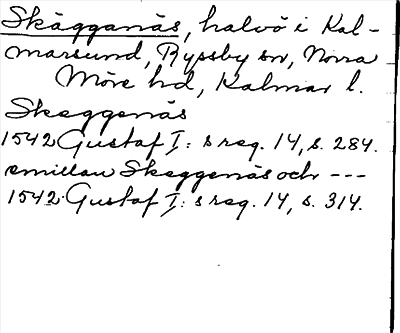 Skägganäs, halvö i Kal-
marsund, Ryssby sn, Norra
Möre hd, Kalmar l.
Skeggenäs
1542 Gustaf I: s reg. 14, s. 284.
emillan Skeggenäs och ---
1542 Gustaf I: s reg. 14, s. 314.